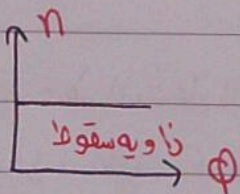 n
زاویه سقوط
Φ